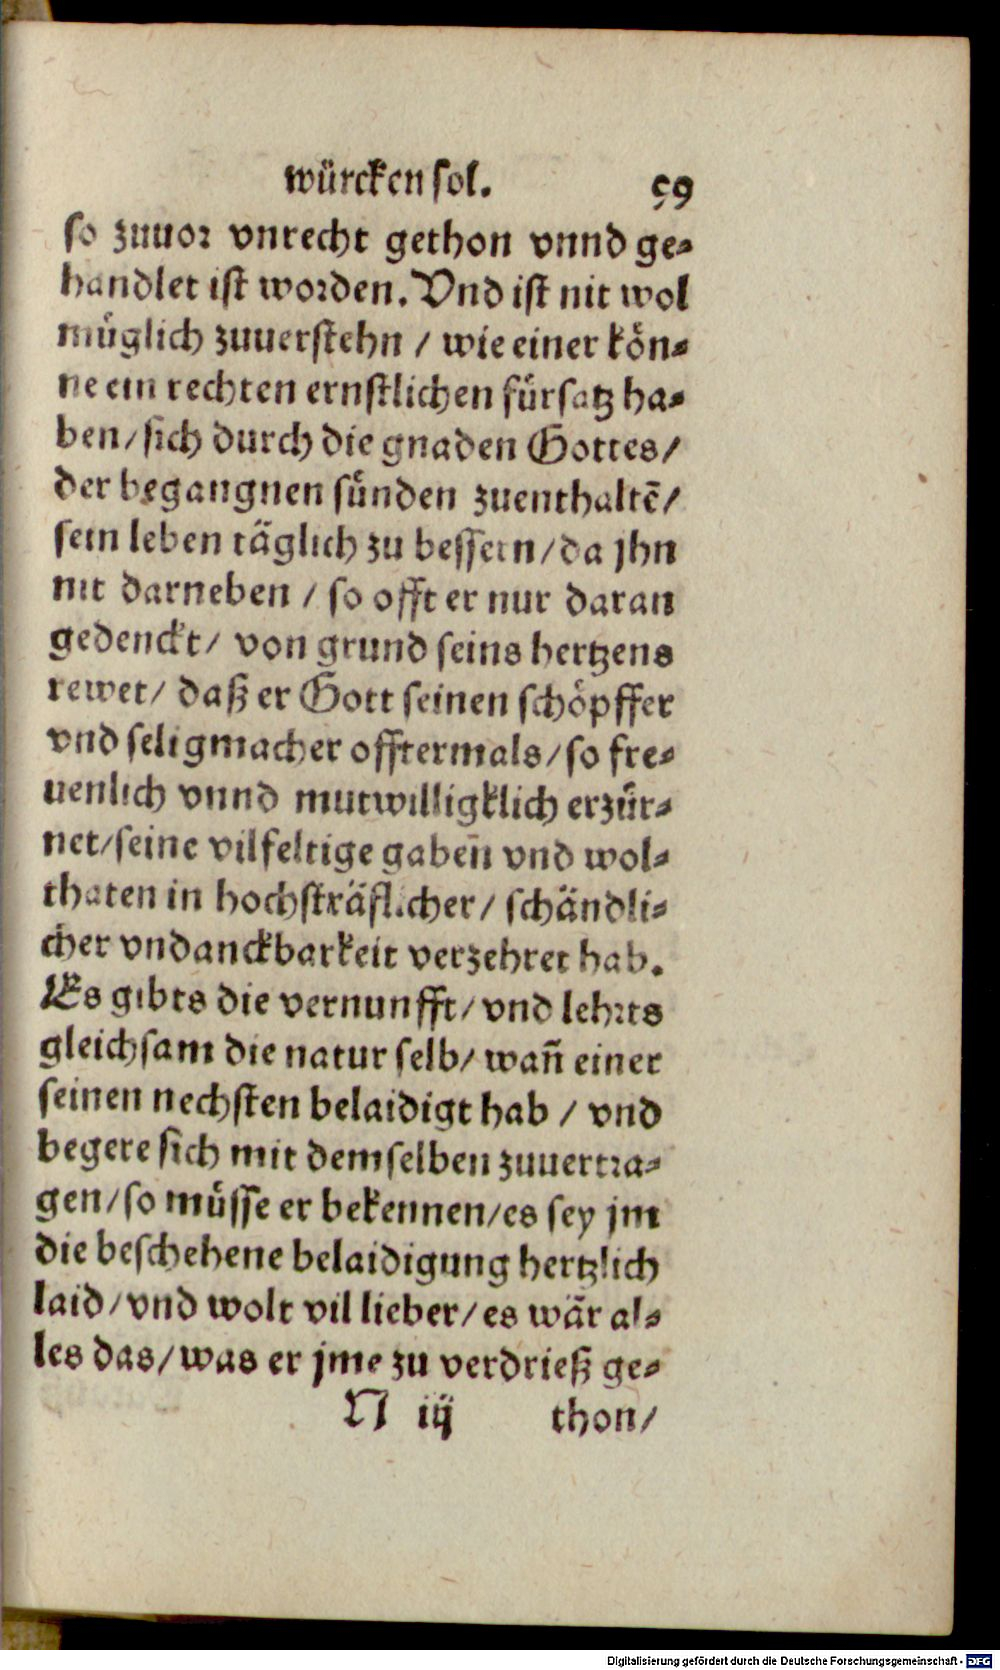 würcken sol. 59
so zuuor vnrecht gethon vnnd ge⸗
handlet ist worden. Vnd ist nit wol
müglich zuuerstehn / wie einer kön⸗
ne ein rechten ernstlichen fürsatz ha⸗
ben / sich durch die gnaden Gottes /
der begangnen sünden zuenthaltē /
sein leben täglich zu bessern / da jhn
nit darneben / so offt er nur daran
gedenckt / von grund seins hertzens
rewet / daß er Gott seinen schöpffer
vnd seligmacher offtermals / so fre⸗
uenlich vnnd mutwilligklich erzür⸗
net / seine vilfeltige gabeñ vnd wol⸗
thaten in hochsträflicher / schändli⸗
cher vndanckbarkeit verzehret hab.
Es gibts die vernunfft / vnd lehrts
gleichsam die natur selb / wañ einer
seinen nechsten belaidigt hab / vnd
begere sich mit demselben zuuertra⸗
gen / so müsse er bekennen / es sey jm
die beschehene belaidigung hertzlich
laid / vnd wolt vil lieber / es wär al⸗
les das / was er jme zu verdrieß ge⸗
N iij thon /
Digitalisierung gefördert durch die Deutsche Forschungsgemeinschaft - DFG